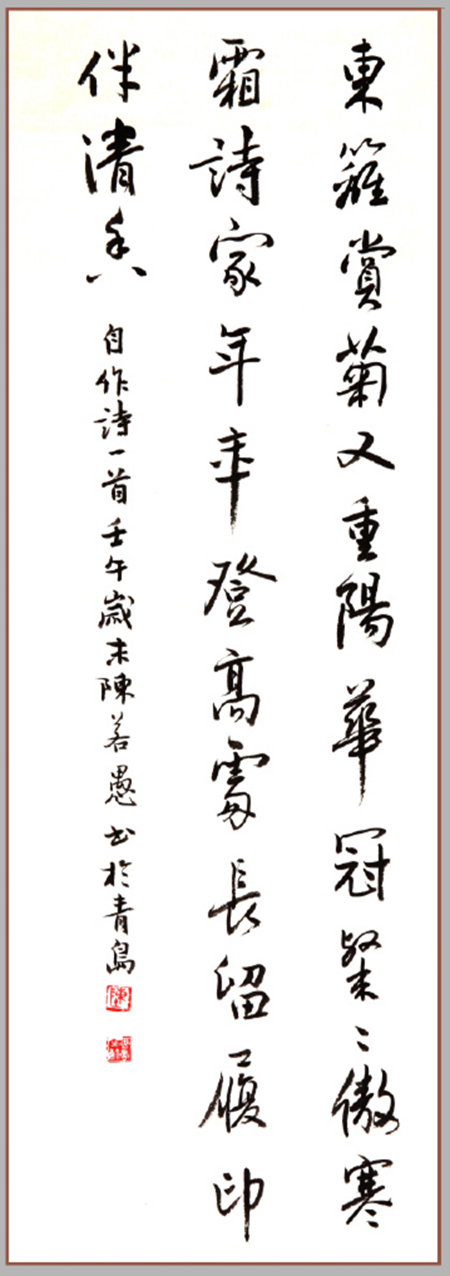 東籬賞菊又重陽華冠粲々傲寒
霜詩家年年登高處長留履印
伴清香
自作詩一首壬午歲末陳若愚书於青島